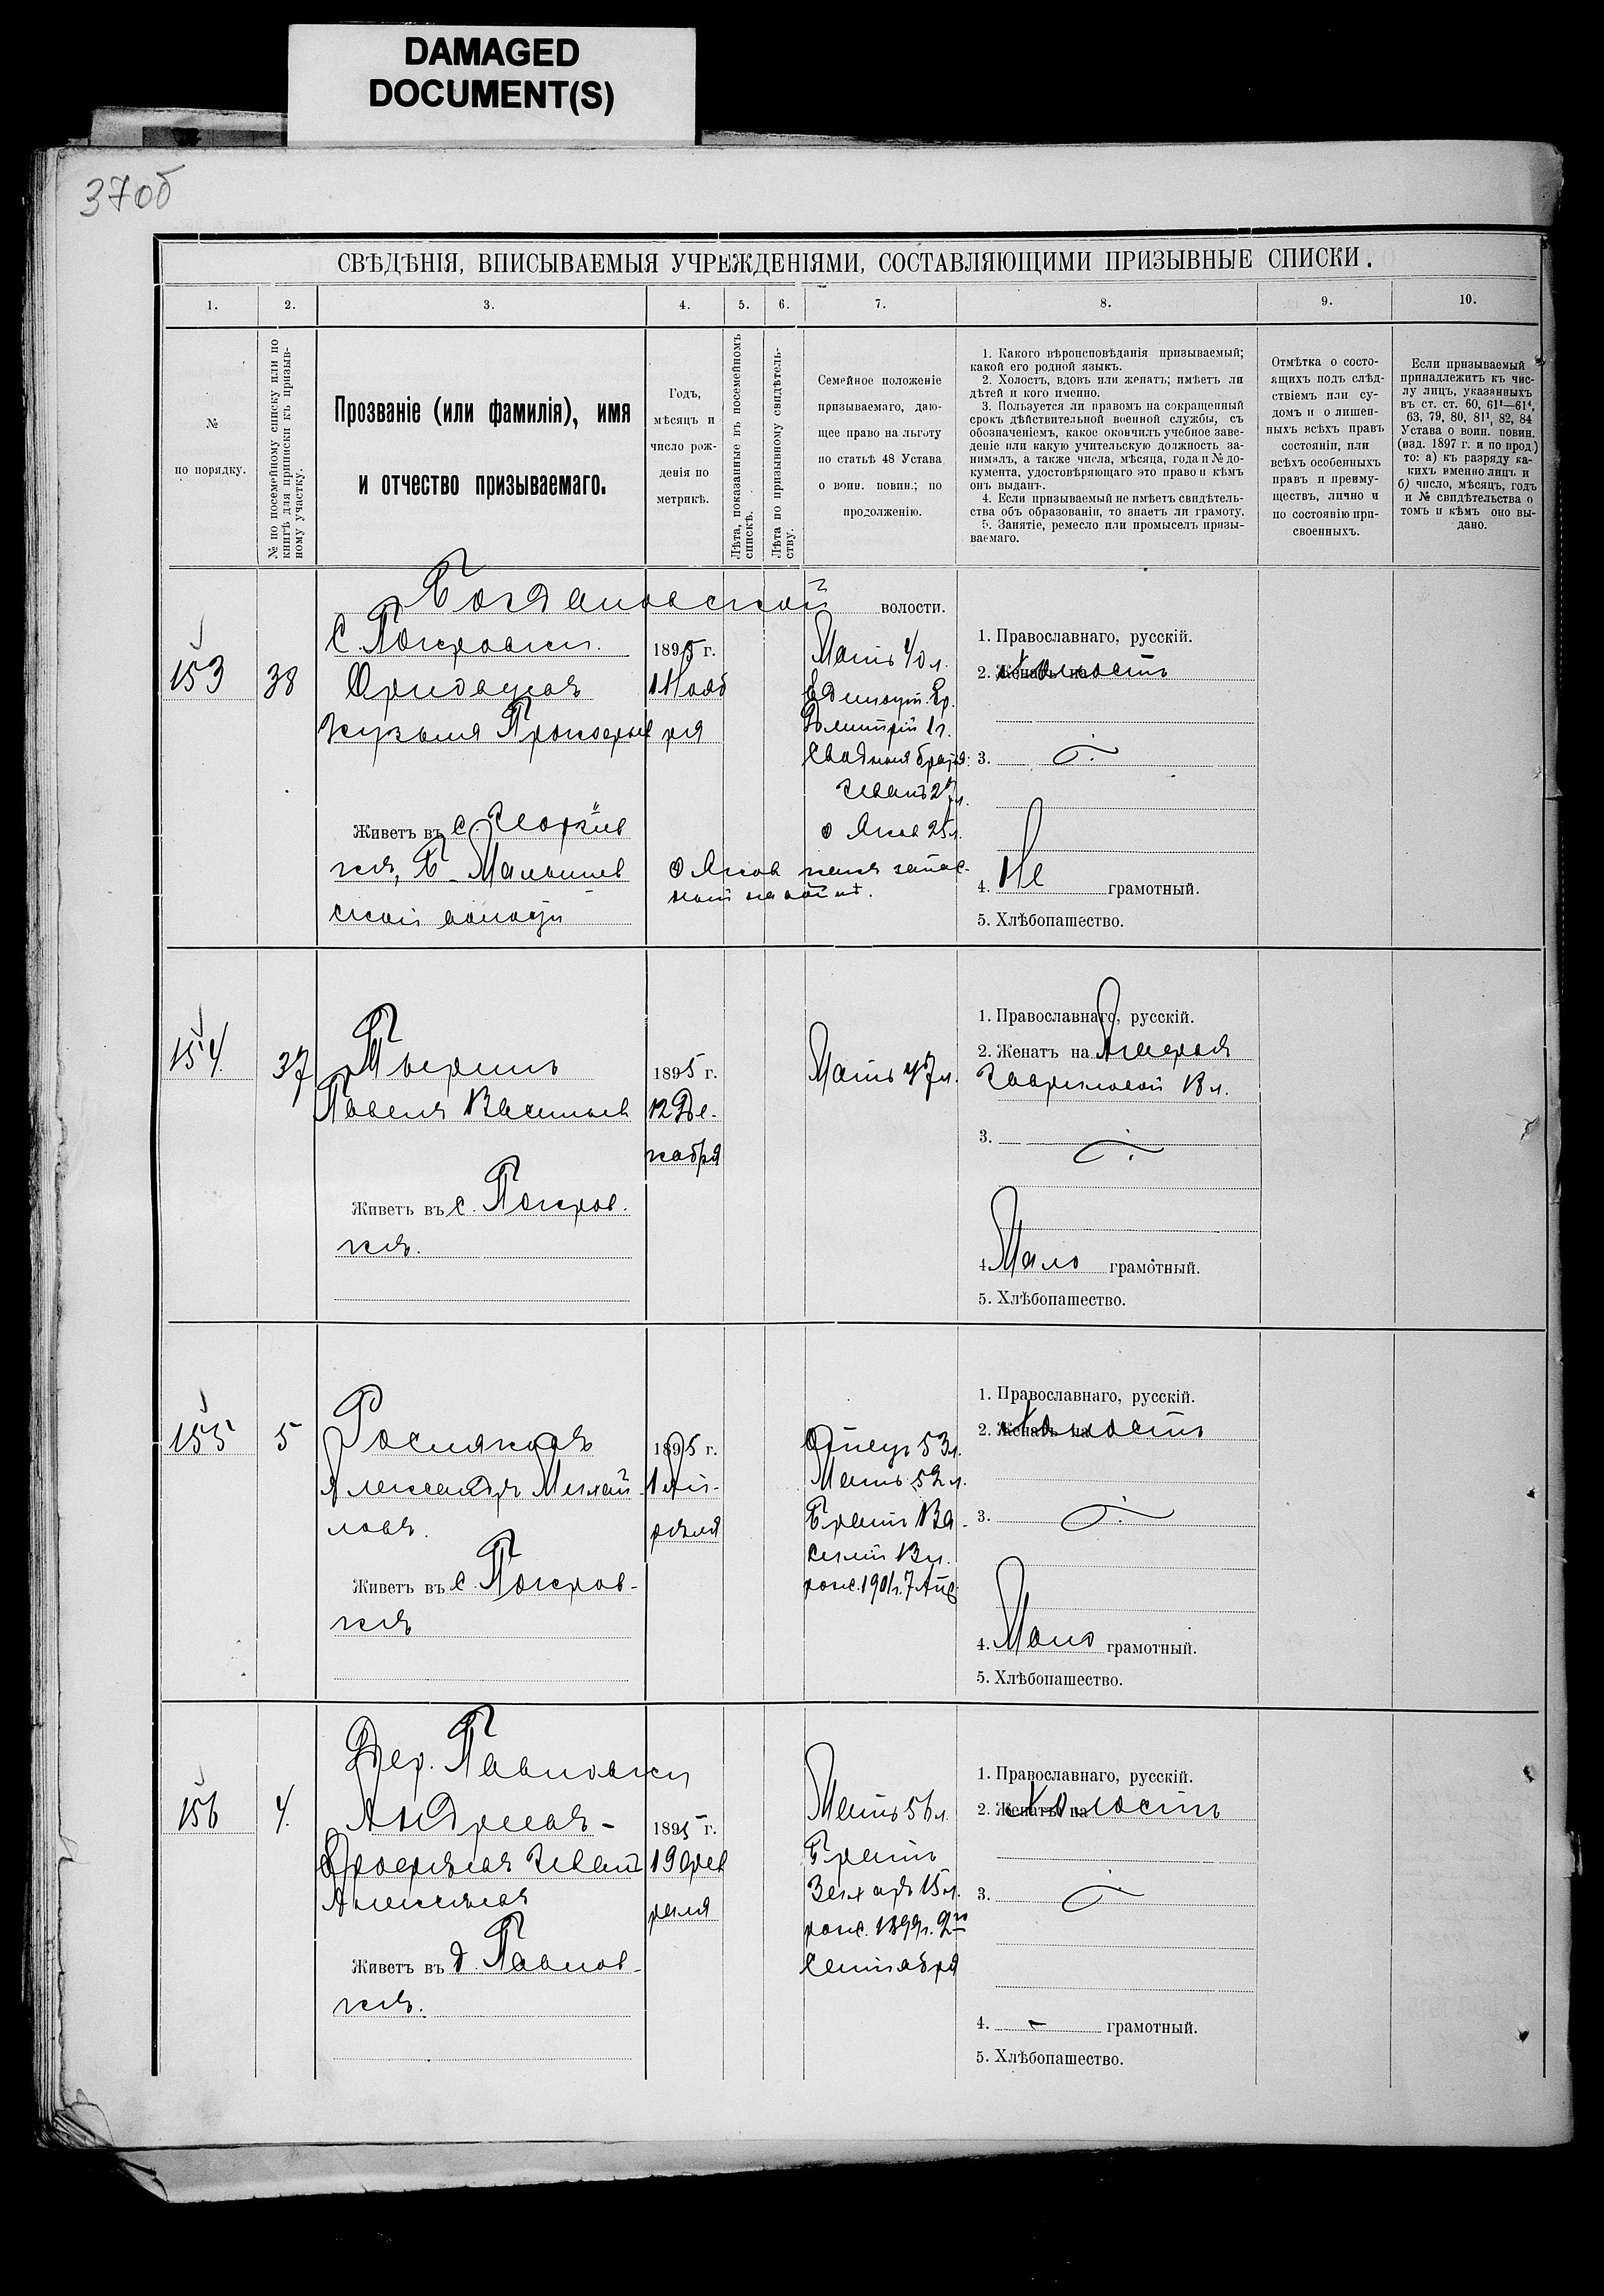 DAMAGED
DOCUMENT(S)
37об
СВѢДѢНІЯ, ВПИСЫВАЕМЫЯ УЧРЕЖДЕНІЯМИ, СОСТАВЛЯЮЩИМИ ПРИЗЫВНЫЕ СПИСКИ.
1. 2. 3. 4. 5. 6. 7. 8. 9. 10.
№
по порядку.
№ по посемейному списку или по
книгѣ для приписки къ призыв-
ному участку.
Прозваніе (или фамилія), имя
и отчество призываемаго.
Годъ,
мѣсяцъ и
число рож-
денія по
метрикѣ.
Лѣта, показанные въ посемейномъ
спискѣ.
Лѣта по призывному свидѣтель-
ству.
Семейное положеніе
призываемаго, даю-
щее право на льготу
по статьѣ 48 Устава
о воин. повин.; по
продолженію.
1. Какого вѣроисповѣданія призываемый;
какой его родной языкъ.
2. Холостъ, вдовъ или женатъ; имѣетъ ли
дѣтей и кого именно.
3. Пользуется ли правомъ на сокращенный
срокъ дѣйствительной военной службы, съ
обозначеніемъ, какое окончилъ учебное заве-
деніе или какую учительскую должность за-
нималъ, а также числа, мѣсяца, года и № до-
кумента, удостовѣряющаго это право и кѣмъ
онъ выданъ.
4. Если призываемый не имѣетъ свидѣтель-
ства объ образованіи, то знаетъ ли грамоту.
5. Занятіе, ремесло или промыселъ призы-
ваемаго.
Отмѣтка о состо-
ящихъ подъ слѣд-
ствіемъ или су-
домъ и о лишен-
ныхъ всѣхъ правъ
состоянія, или
всѣхъ особенныхъ
правъ и преиму-
ществъ, лично и
по состоянію при-
своенныхъ.
Если призываемый
принадлежитъ къ чис-
лу лицъ, указанныхъ
въ ст. ст. 60, 61¹—61⁴,
63, 79, 80, 81¹, 82, 84
Устава о воин. повин.
(изд. 1897 г. и по прод.)
то: а) къ разряду ка-
кихъ именно лицъ и
б) число, мѣсяцъ, годъ
и № свидѣтельства о
томъ и кѣмъ оно вы-
дано.
Богдановской волости.
С. Покровки.
153 38
Кузьма Прокофьев
1895 г.
1 Нояб
ря
Мать 40 л.
Димитрій 1 г.
Сводныя братья:
Иванъ 27 л.
Яков 25 л.
Живетъ въ с.
1. Православнаго, русскій.
2. Женатъ на Холостъ
3.
4. Не грамотный.
5. Хлѣбопашество.
154 37
Павелъ Васильев
1895 г.
12 Де-
кабря
Мать 47 л.
Живетъ въ с. Покров-
кѣ.
1. Православнаго, русскій.
2. Женатъ на
Гавриловой 18 л.
3.
4. Мало грамотный.
5. Хлѣбопашество.
155 5
Росляковъ
Александръ Михай-
ловъ.
1895 г.
1 Ап-
рѣля
Отецъ 53 л.
Мать 52 л.
Братъ Ва-
силій 13 л.
рож. 1901 г. 7 Апр
Живетъ въ с. Покров-
кѣ
1. Православнаго, русскій.
2. Женатъ на Холостъ
3.
4. Мало грамотный.
5. Хлѣбопашество.
Дер. Павловки
156 4.
Андреевъ-
Ерофеевъ Иванъ
Алексѣевъ
1895 г.
19 Фев
раля
Мать 56 л.
Братъ
Захаръ 15 л.
рож. 1899 г. 2го
Сентября
Живетъ въ д. Павлов-
кѣ.
1. Православнаго, русскій.
2. Женатъ на Холостъ
3.
4. - грамотный.
5. Хлѣбопашество.